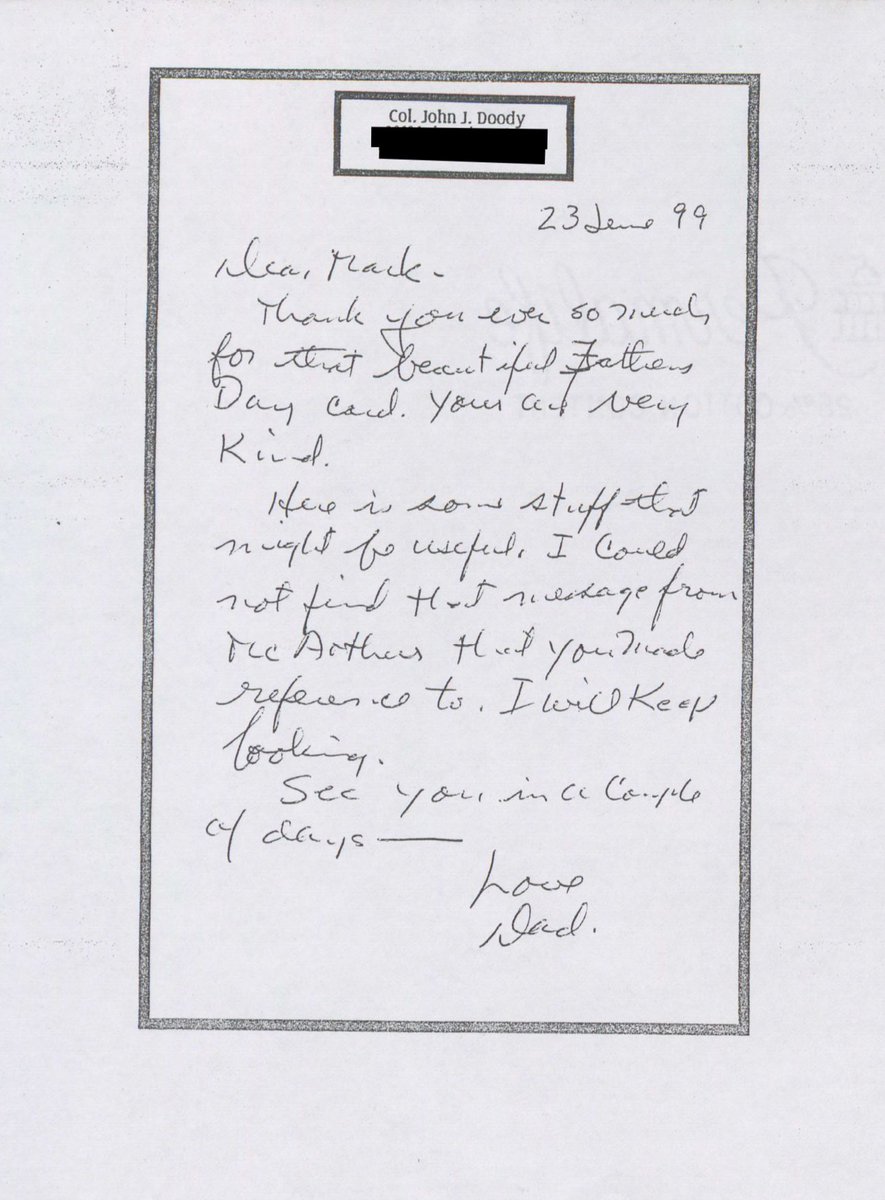 Col. John J. Doody
23 June 99
Dear Mark.
Thank you ever so much
for that beautiful Fathers
Day card. Your are very
Kind.
Here is some stuff that
might be useful. I could
not find that message from
McArthur that you made
reference to. I will Keep
looking.
See you in a couple
of days —
Love
Dad.